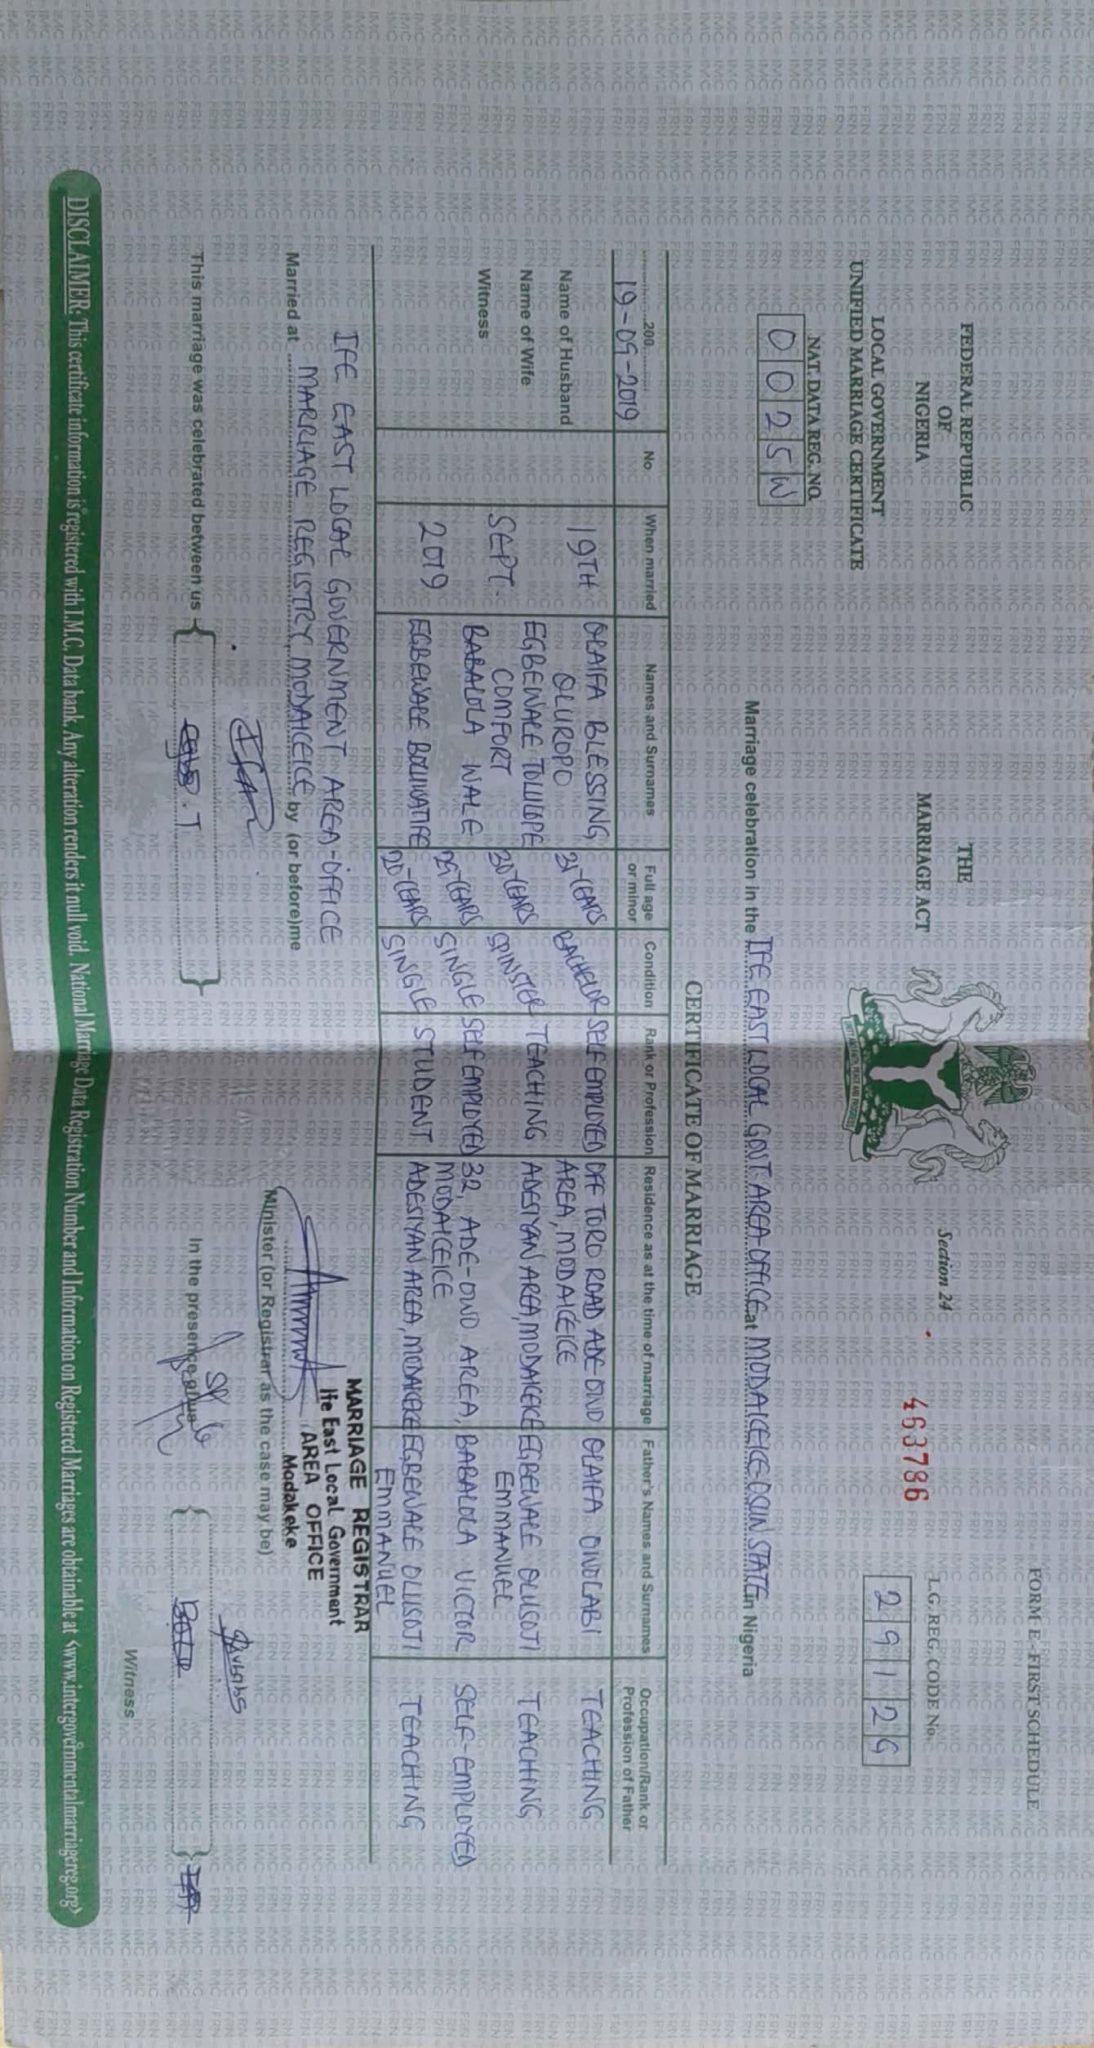 FORM E-FIRST SCHEDULE
FEDERAL REPUBLIC
OF
NIGERIA
THE
MARRIAGE ACT
Section 24
463786
L.G. REG. CODE No.
29129
LOCAL GOVERNMENT
UNIFIED MARRIAGE CERTIFICATE
NAT. DATA REG. NO.
0025W
Marriage celebration in the IFE EAST LOCAL GOVT. AREA OFFICE at MODAKEKE OSUN STATE in Nigeria
CERTIFICATE OF MARRIAGE
............200............ No When married Names and Surnames Full age or minor Condition Rank or Profession Residence as at the time of marriage Father's Names and Surnames Occupation/Rank or Profession of Father
19-09-2019
Name of Husband 19TH OLAIFA BLESSING OLUROPO 31 YEARS BACHELOR SELF EMPLOYED OFF TORO ROAD ADE-OWO AREA, MODAKEKE OLAIFA OWOLABI TEACHING
Name of Wife SEPT. EGBEWALE TOLULOPE COMFORT 30 YEARS SPINSTER TEACHING ADESIYAN AREA, MODAKEKE EGBEWALE OLUSOTI EMMANUEL TEACHING
Witness BABALOLA WALE YEARS SINGLE SELF EMPLOYED 32, ADE-OWO AREA, MODAKEKE BABALOLA VICTOR SELF-EMPLOYED
2019 EGBEWALE BOLUWATIFE 20 YEARS SINGLE STUDENT ADESIYAN AREA, MODAKEKE EGBEWALE OLUSOTI EMMANUEL TEACHING
IFE EAST LOCAL GOVERNMENT AREA OFFICE
Married at MARRIAGE REGISTRY MODAKEKE by (or before) me
MARRIAGE REGISTRAR
Ife East Local Government
AREA OFFICE
Modakeke
Minister (or Registrar as the case may be)
This marriage was celebrated between us
In the presence of us
Witness
DISCLAIMER: This certificate information is registered with I.M.C. Data bank. Any alteration renders it null void. National Marriage Data Registration Number and Information on Registered Marriages are obtainable at <www.intergovernmentalmarriagereg.org>